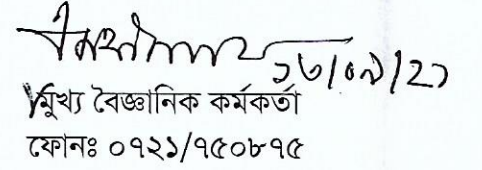 ১৬/০৯/২১
মুখ্য বৈজ্ঞানিক কর্মকর্তা
ফোনঃ ০৭২১/৭৫০৮৭৫